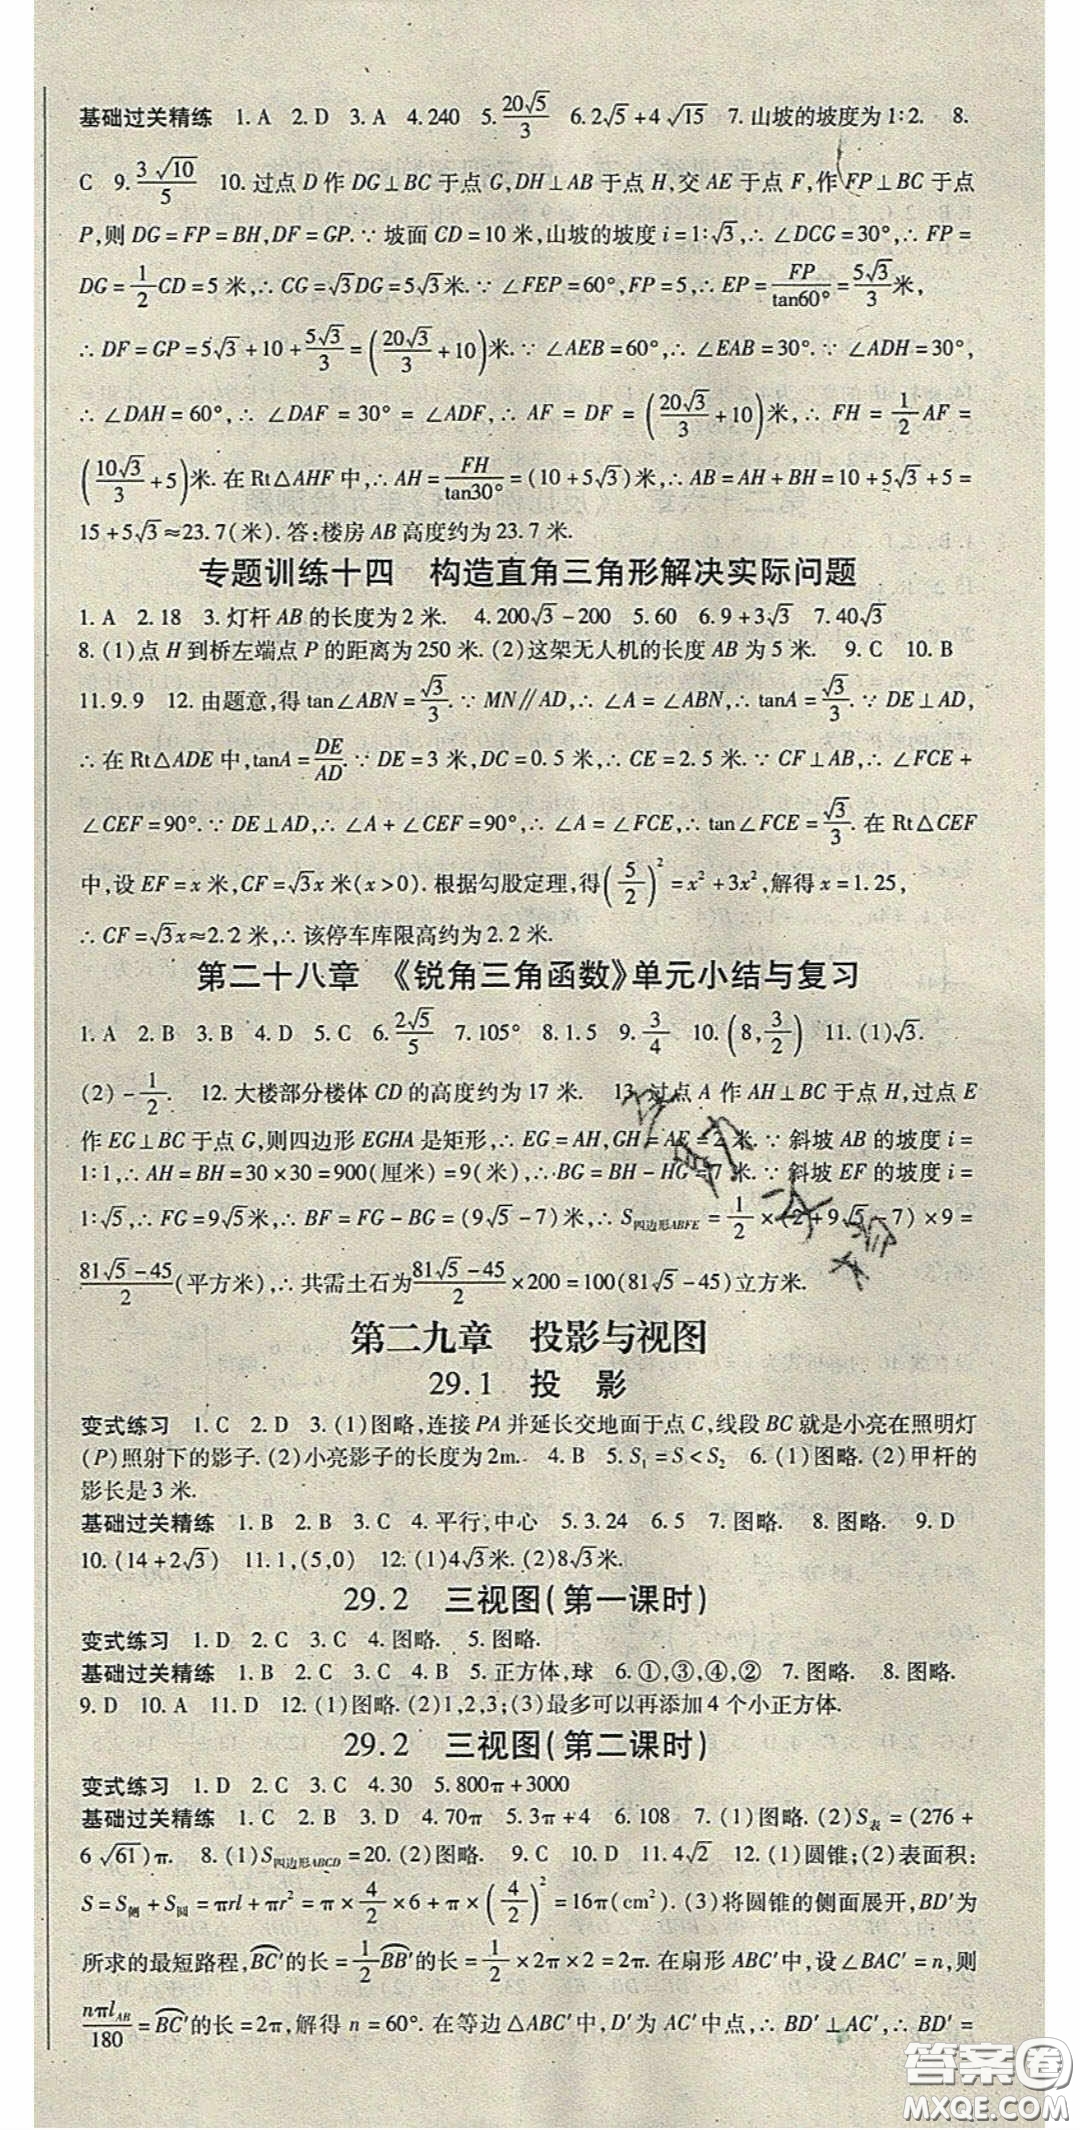 基础过关精练 1.A 2.D 3.A 4.240 5.20√5/3 6.2√5+4√15 7.山坡的坡度为1∶2. 8.
C 9.3√10/5 10.过点D作DG⊥BC于点G,DH⊥AB于点H,交AE于点F,作FP⊥BC于点
P,则DG=FP=BH,DF=GP.∵坡面CD=10米,山坡的坡度i=1∶√3,∴∠DCG=30°,∴FP=
DG=1/2CD=5米,∴CG=√3DG=5√3米.∵∠FEP=60°,FP=5,∴EP=FP/tan60°=5√3/3米,
∴DF=GP=5√3+10+5√3/3=(20√3/3+10)米.∵∠AEB=60°,∴∠EAB=30°.∵∠ADH=30°,
∴∠DAH=60°,∴∠DAF=30°=∠ADF,∴AF=DF=(20√3/3+10)米,∴FH=1/2AF=
(10√3/3+5)米.在Rt△AHF中,∴AH=FH/tan30°=(10+5√3)米,∴AB=AH+BH=10+5√3+5=
15+5√3≈23.7(米).答:楼房AB高度约为23.7米.
专题训练十四 构造直角三角形解决实际问题
1.A 2.18 3.灯杆AB的长度为2米. 4.200√3-200 5.60 6.9+3√3 7.40√3
8.(1)点H到桥左端点P的距离为250米.(2)这架无人机的长度AB为5米. 9.C 10.B
11.9.9 12.由题意,得tan∠ABN=√3/3.∵MN∥AD,∴∠A=∠ABN,∴tanA=√3/3.∵DE⊥AD,
∴在Rt△ADE中,tanA=DE/AD.∵DE=3米,DC=0.5米,∴CE=2.5米.∵CF⊥AB,∴∠FCE+
∠CEF=90°.∵DE⊥AD,∴∠A+∠CEF=90°,∴∠A=∠FCE,∴tan∠FCE=√3/3.在Rt△CEF
中,设EF=x米,CF=√3x米(x>0).根据勾股定理,得(5/2)²=x²+3x²,解得x=1.25,
∴CF=√3x≈2.2米,∴该停车库限高约为2.2米.
第二十八章 《锐角三角函数》单元小结与复习
1.A 2.B 3.B 4.D 5.C 6.2√5/5 7.105° 8.1.5 9.3/4 10.(8,3/2) 11.(1)√3.
(2)-1/2. 12.大楼部分楼体CD的高度约为17米. 13.过点A作AH⊥BC于点H,过点E
作EG⊥BC于点G,则四边形EGHA是矩形,∴EG=AH,GH=AE=2米.∵斜坡AB的坡度i=
1∶1,∴AH=BH=30×30=900(厘米)=9(米),∴BG=BH-HG=7米.∵斜坡EF的坡度i=
1∶√5,∴FG=9√5米,∴BF=FG-BG=(9√5-7)米,∴S四边形ABFE=1/2×(2+9√5-7)×9=
81√5-45/2(平方米),∴共需土石为81√5-45/2×200=100(81√5-45)立方米.
第二九章 投影与视图
29.1 投 影
变式练习 1.C 2.D 3.(1)图略,连接PA并延长交地面于点C,线段BC就是小亮在照明灯
(P)照射下的影子.(2)小亮影子的长度为2m. 4.B 5.S₁=S<S₂ 6.(1)图略.(2)甲杆的
影长是3米.
基础过关精练 1.B 2.B 3.C 4.平行,中心 5.3.24 6.5 7.图略. 8.图略. 9.D
10.(14+2√3) 11.1,(5,0) 12.(1)4√3米.(2)8√3米.
29.2 三视图(第一课时)
变式练习 1.D 2.C 3.C 4.图略. 5.图略.
基础过关精练 1.B 2.C 3.C 4.B 5.正方体,球 6.①,③,④,② 7.图略. 8.图略.
9.D 10.A 11.D 12.(1)图略.(2)1,2,3;(3)最多可以再添加4个小正方体.
29.2 三视图(第二课时)
变式练习 1.D 2.C 3.C 4.30 5.800π+3000
基础过关精练 1.C 2.B 3.D 4.70π 5.3π+4 6.108 7.(1)图略.(2)S表=(276+
6√61)π. 8.(1)S四边形ABCD=20.(2)图略. 9.C 10.D 11.4√2 12.(1)圆锥;(2)表面积:
S=S侧+S圆=πrl+πr²=π×4/2×6+π×(4/2)²=16π(cm²).(3)将圆锥的侧面展开,BD′为
所求的最短路程,BC′的长=1/2BB′的长=1/2×2π×2=2π.在扇形ABC′中,设∠BAC′=n,则
nπl_AB/180=BC′的长=2π,解得n=60°.在等边△ABC′中,D′为AC′中点,∴BD′⊥AC′,∴BD′=
答案圈
MXQE.COM